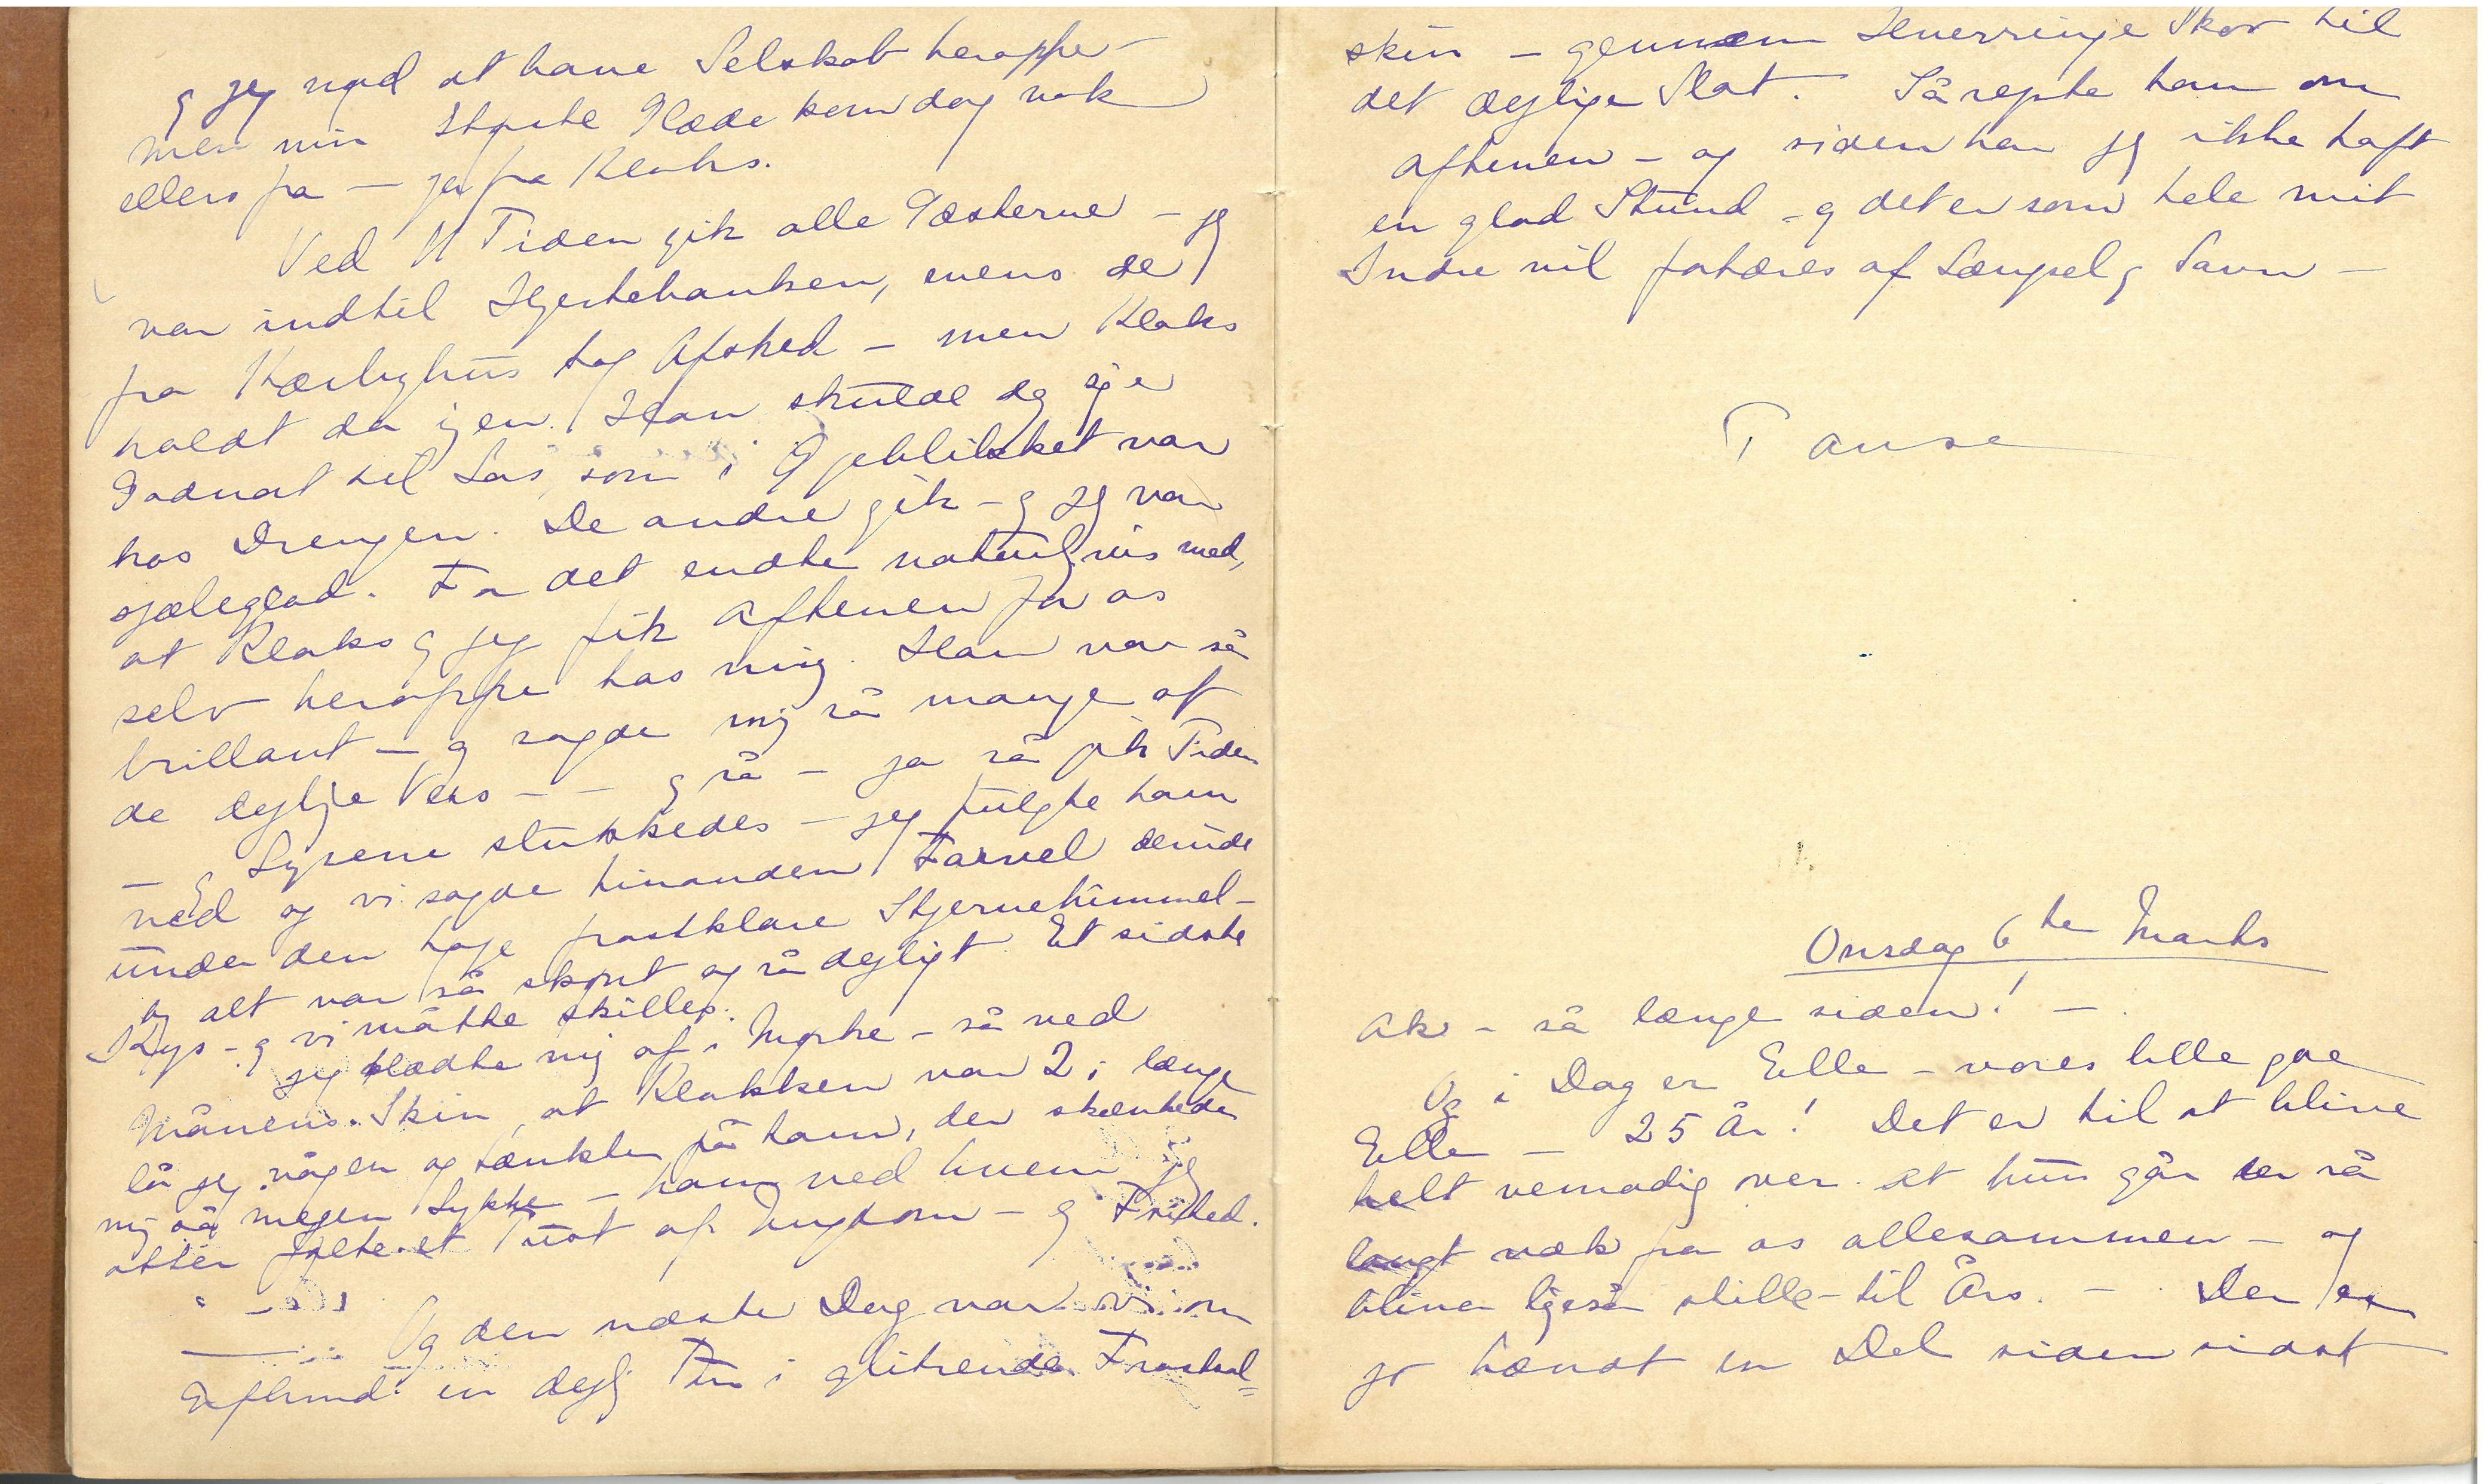 og jeg nød at have Selskab heroppe –
men min største Glæde kom dog nok
ellers fra – ja fra Klaks.
Ved 11 Tiden gik alle Gæsterne – jeg
var indtil Hjertebanken, mens de
fra Kærbyhus tog Afsked – men Klaks
holdt da igen. Han skulde dog sige
Godnat til Las, som i Øjeblikket var
hos Drengen. De andre gik – og jeg var
sjæleglad. For det endte naturligvis med,
at Klaks og jeg fik Aftenen for os
selv heroppe hos mig. Han var så
brillant – og sagde mig så mange af
de dejlige Vers – – og så – ja så gik Tiden
– og Lysene slukkedes – jeg fulgte ham
ned og vi sagde hinanden Farvel derude
under den høje frostklare Stjernehimmel –
og alt var så skønt og så dejligt. Et sidste
Kys – og vi måtte skilles.
Jeg klædte mig af i Mørke – så ved
Månens Skin, at Klokken var 2; længe
lå jeg vågen og tænkte på ham, der skænkede
mig så megen Lykke – ham ved hvem jeg
atter følte et Pust af Ungdom – og Frihed.
Og den næste Dag var vi om
Eftermd. en dejlig Tur i glitrende Frostsol=
skin – gennem Hverringe Skov til
det dejlige Slot. Så rejste han om
Aftenen – og siden har jeg ikke haft
en glad Stund – og det er som hele mit
Indre vil fortæres af Længsel og Savn –
Pause
Onsdag 6te Marts
Ak – så længe siden! –
Og i Dag er Elle – vores lille gode
Elle – 25 År! Det er til at blive
helt vemodig over at hun går der så
langt væk fra os allesammen – og
bliver ligeså stille til Års. – Der er
jo hændt en Del siden sidst